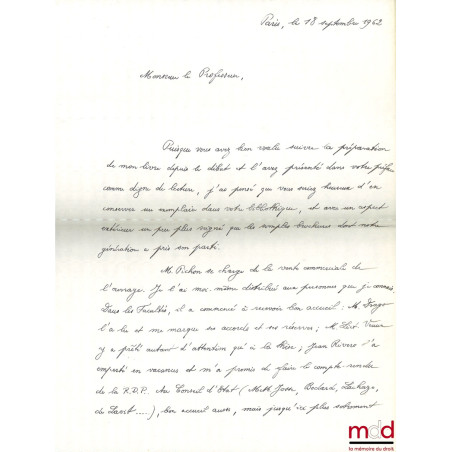 Paris, le 18 septembre 1962
Monsieur le Professeur,
Puisque vous avez bien voulu suivre la préparation
de mon livre depuis le début et l'avez présenté dans votre préface
comme digne de lecture, j'ai pensé que vous seriez heureux d'en
conserver un exemplaire dans votre bibliothèque, et avec un aspect
extérieur un peu plus soigné que les simples brochures dont notre
génération a pris son parti.
M. Pichon se charge de la vente commerciale de
l'ouvrage. Je l'ai moi-même distribué aux personnes que je connais.
Dans les Facultés, il a commencé à recevoir bon accueil : M. Drago
l'a lu et me marque ses accords et ses réserves ; M.
y a prêté autant d'attention qu'à la thèse ; Jean Rivero l'a
emporté en vacances et m'a promis de faire le compte rendu
de la R.D.P. Au Conseil d'Etat ( Josse,
de ....), bon accueil aussi, mais jusqu'ici plus
mdd
la mémoire du droit.